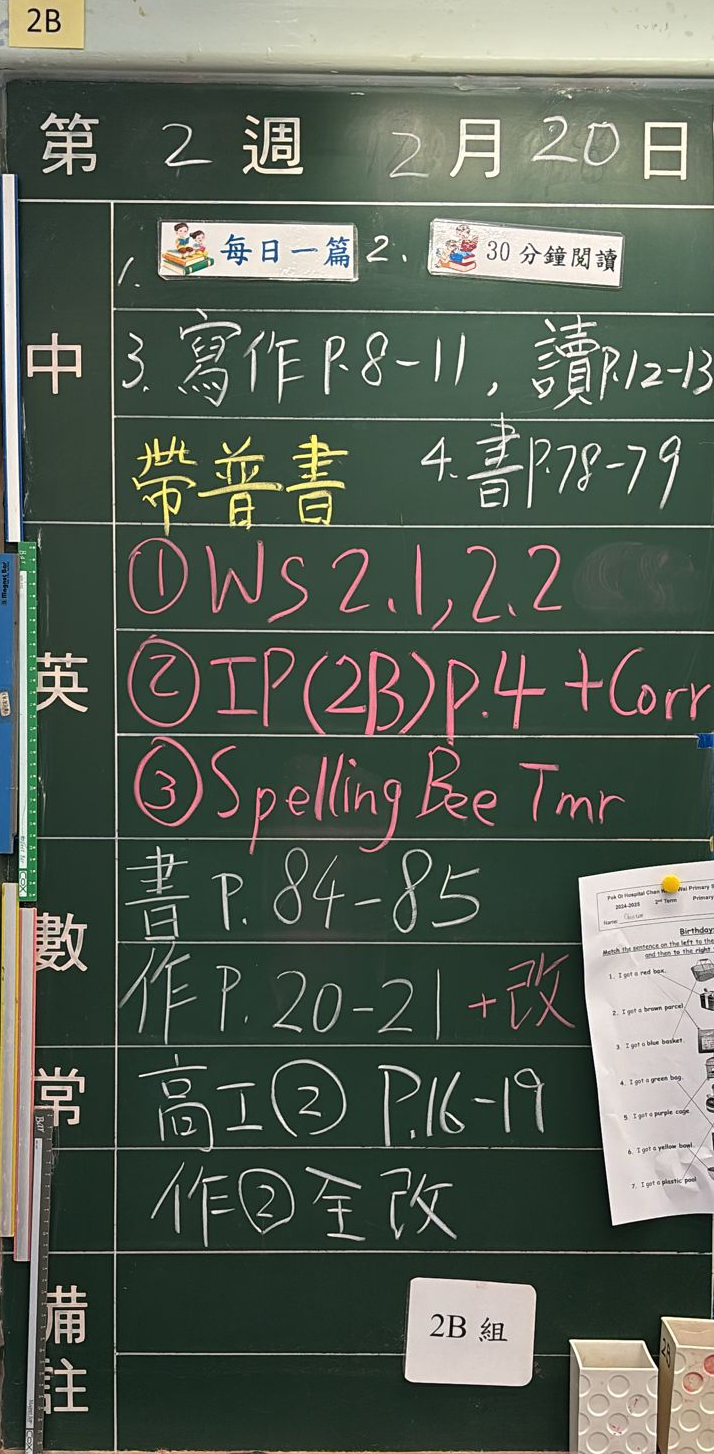 2B
第 2 週 2 月 20 日
中
1. 每日一篇 2. 30分鐘閱讀
3. 寫作 P.8-11, 讀P.12-13
帶普書 4.書P.78-79
英
① WS 2.1, 2.2
② IP(2B) p.4 + Corr
③ Spelling Bee Tmr
數
書 P. 84-85
作 P. 20-21 +改
常
高工② P.16-19
作②全改
備註
2B 組
Pok Oi Hospital Chan Wai Primary
2024-2025 2nd Term Primary
Name:
Birthday
Match the sentence on the left to the
and then to the right
1. I got a red box.
2. I got a brown parcel.
3. I got a blue basket.
4. I got a green bag.
5. I got a purple cage.
6. I got a yellow bowl.
7. I got a plastic pool